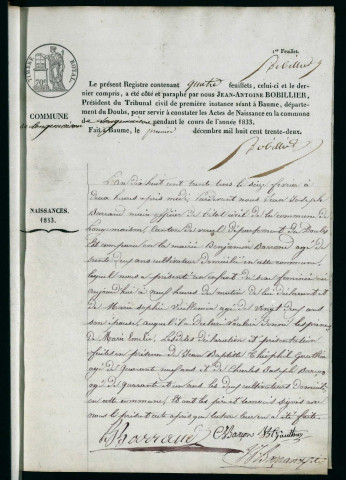 1er Feuillet.
Bobillier
TIMBRE ROYAL
Le présent Registre contenant quatre feuillets, celui-ci et le der-
nier compris, a été coté et paraphé par nous JEAN-ANTOINE BOBILLIER,
Président du Tribunal civil de première instance séant à Baume, départe-
ment du Doubs, pour servir à constater les Actes de Naissance en la commune
COMMUNE
d pendant le cours de l'année 1833.
Fait à Baume, le premier décembre mil huit cent trente-deux.
Bobillier
NAISSANCES.
1833.
L'an dix huit cent trente trois le seize février à
deux heures après midi, pardevant nous Jean Joseph
maire officier de l'état civil de la commune de
canton de département du Doubs
est comparu en la mairie Benjamin agé de
trente ans cultivateur domicilié en cette commune
lequel nous a présenté un enfant du sexe féminin né
aujourd'hui à neuf heures du matin de lui déclarant et
de Marie agé de vingt neuf ans
son épouse, auquel il a déclaré vouloir donner les prénoms
de Marie Emelie. Lesdites déclaration et présentation
faites en présence de Jean Baptiste Théophile Gauthier
agé de quarante neuf ans et de Charles Joseph
agé de quarante un ans les deux cultivateurs domiciliés
en cette commune, et ont les père et témoins signé avec
nous le présent acte après que lecture leur en a été faite.